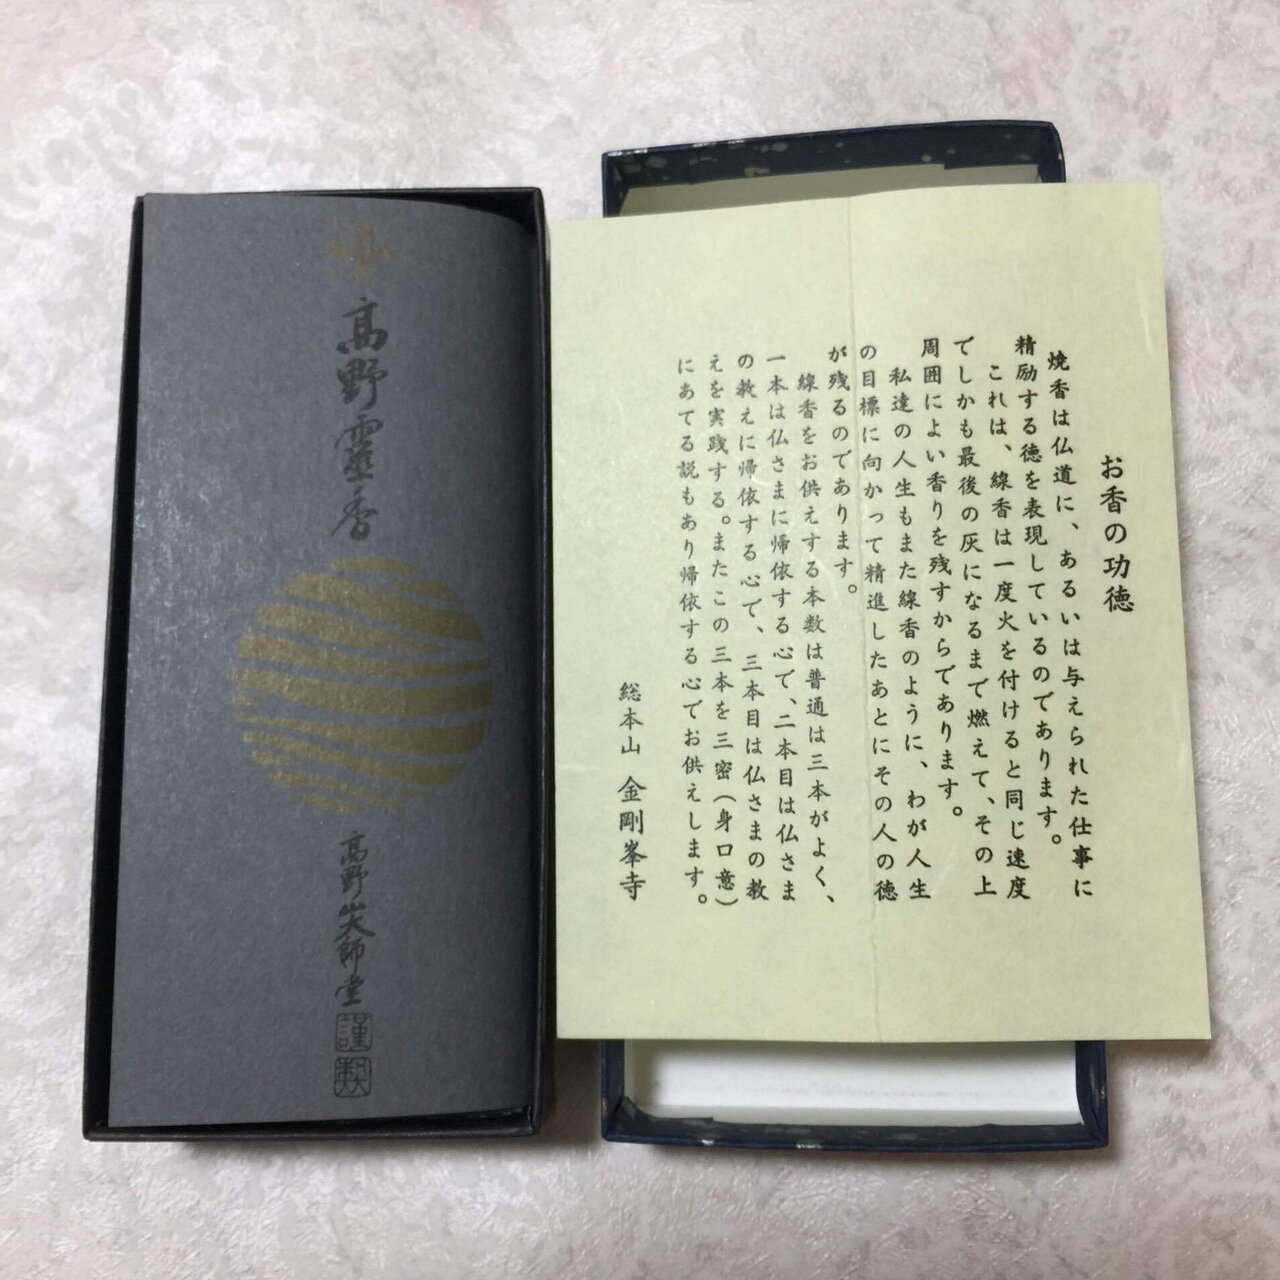 高野霊香
高野山大師堂
謹製
お香の功徳
焼香は仏道に、あるいは与えられた仕事に
精励する徳を表現しているのであります。
これは、線香は一度火を付けると同じ速度
でしかも最後の灰になるまで燃えて、その上
周囲によい香りを残すからであります。
私達の人生もまた線香のように、わが人生
の目標に向かって精進したあとにその人の徳
が残るのであります。
線香をお供えする本数は普通は三本がよく、
一本は仏さまに帰依する心で、二本目は仏さま
の教えに帰依する心で、三本目は仏さまの教
えを実践する。またこの三本を三密(身口意)
にあてる説もあり帰依する心でお供えします。
総本山 金剛峯寺